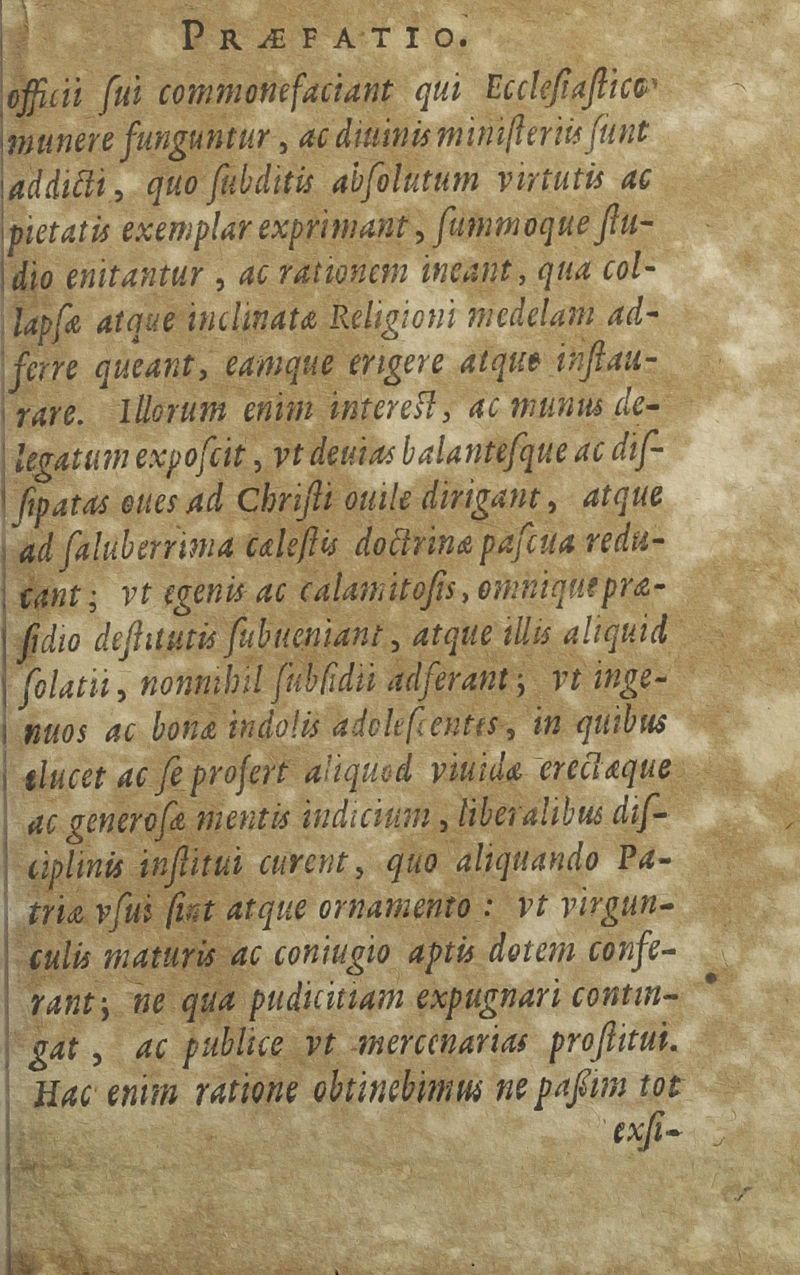 PRÆFATIO.
officii ſui commonefaciant qui Eccleſiaſtico
munere funguntur, ac diuinis miniſteriis ſunt
addicti, quo ſubditis abſolutum virtutis ac
pietatis exemplar exprimant, ſummoque ſtu-
dio enitantur, ac rationem ineant, qua col-
lapſæ atque inclinatæ Religioni medelam ad-
ferre queant, eamque erigere atque inſtau-
rare. Illorum enim intereſt, ac munus de-
legatum expoſcit, vt deuias balanteſque ac diſ-
ſipatas oues ad Chriſti ouile dirigant, atque
ad ſaluberrima cæleſtis doctrinæ paſcua redu-
cant; vt egenis ac calamitoſis, omnique præ-
ſidio deſtitutis ſubueniant, atque illis aliquid
ſolatii, nonnihil ſubſidii adferant; vt inge-
nuos ac bonæ indolis adoleſcentes, in quibus
elucet ac ſe profert aliquod viuidæ erectæque
ac generoſæ mentis indicium, liberalibus diſ-
ciplinis inſtitui curent, quo aliquando Pa-
triæ vſui ſint atque ornamento: vt virgun-
culis maturis ac coniugio aptis dotem confe-
rant; ne qua pudicitiam expugnari contin-
gat, ac publice vt mercenarias proſtitui.
Hac enim ratione obtinebimus ne paſsim tot
exſi-